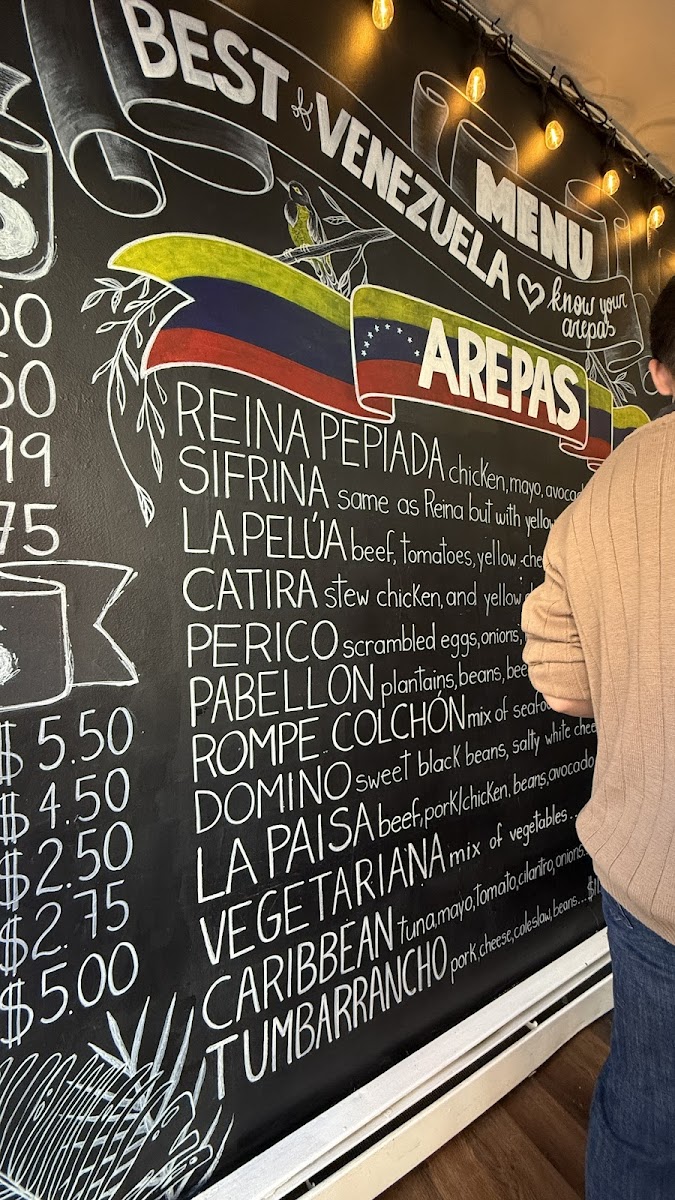 BEST of VENEZUELA
MENU
know your
arepas
AREPAS
REINA PEPIADA chicken, mayo,
SIFRINA same as Reina but with yellow
LA PELÚA beef, tomatoes, yellow
CATIRA stew chicken, and yellow
PERICO scrambled eggs, onions,
PABELLON plantains, beans,
ROMPE COLCHÓN mix of
DOMINO sweet black beans, salty white
LA PAISA beef, pork/chicken, beans, avocado
VEGETARIANA mix of vegetables...
CARIBBEAN tuna, mayo, tomato, cilantro, onions
TUMBARRANCHO pork, cheese, coleslaw, beans...
$5.50
$4.50
$2.50
$2.75
$5.00